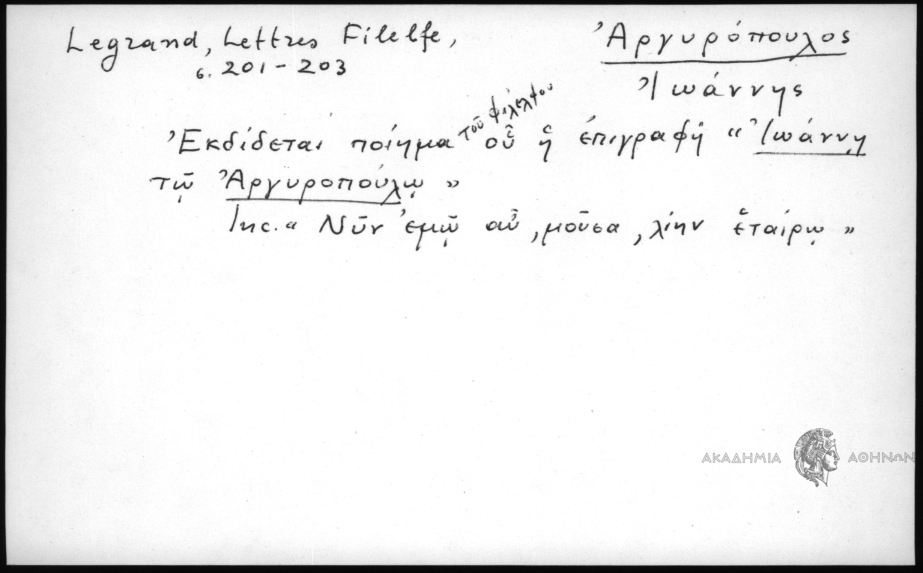 Legrand, Lettres Filelfe,
σ. 201-203
Ἀργυρόπουλος
Ἰωάννης
Ἐκδίδεται ποίημα τοῦ Φιλέλφου οὗ ἡ ἐπιγραφὴ "Ἰωάννῃ
τῷ Ἀργυροπούλῳ"
Inc. "Νῦν ἐμῷ αὖ, μοῦσα, λίην ἑταίρῳ"
ΑΚΑΔΗΜΙΑ ΑΘΗΝΩΝ